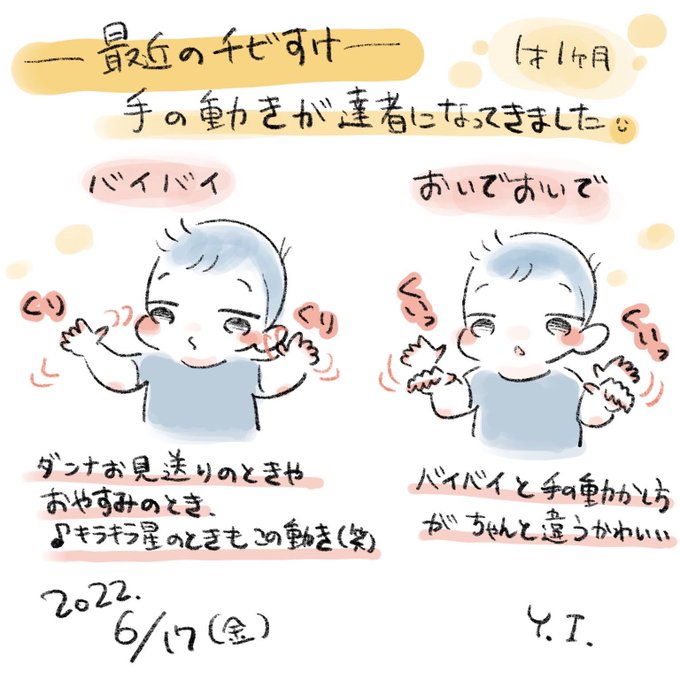 最近のチビすけ
1才1ヶ月
手の動きが達者になってきました
バイバイ
おいでおいで
くり
くり
くいっ
くいっ
ダンナお見送りのときや
おやすみのとき、
♪キラキラ星のときもこの動き(笑)
バイバイと手の動かし方
がちゃんと違うかわいい
2022.
6/17(金)
Y.I.